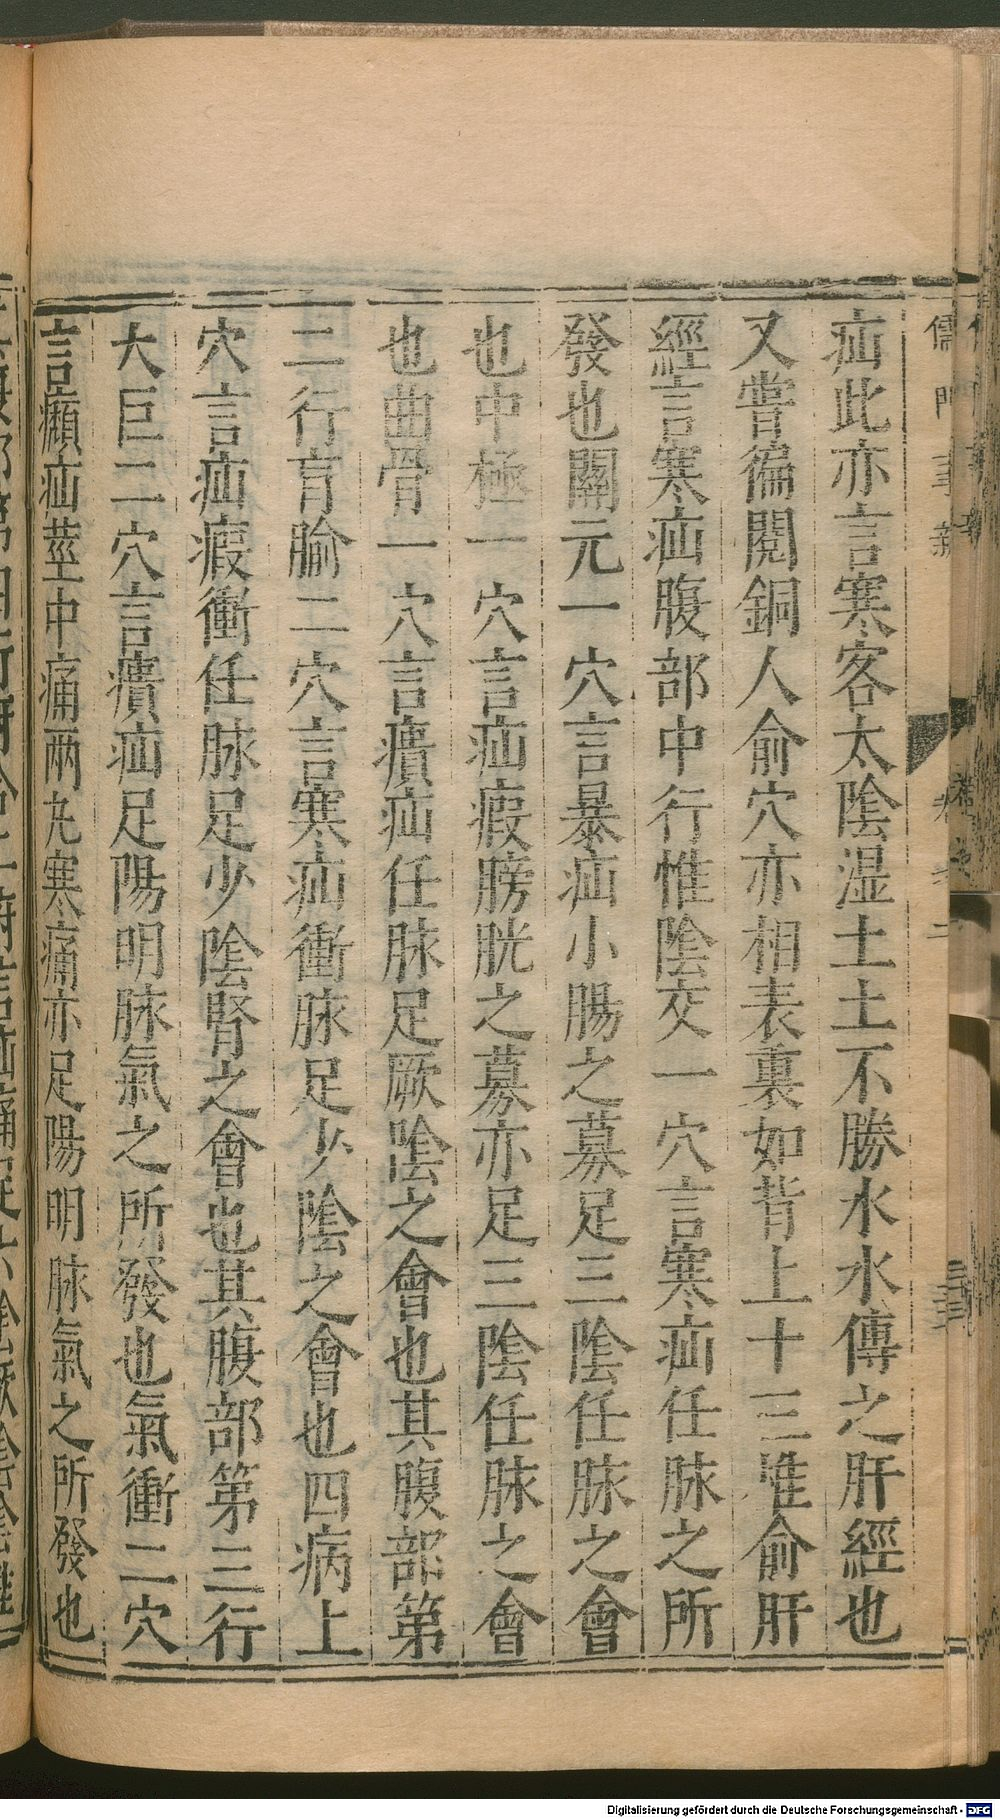 疝此亦言寒客太陰湿土土不勝水水傳之肝經也
又嘗徧閱銅人俞穴亦相表裏如背上十三惟俞肝
經言寒疝腹部中行惟陰交一穴言寒疝任脉之所
發也關元一穴言暴疝小腸之募足三陰任脉之會
也中極一穴言疝瘕膀胱之募亦足三陰任脉之會
也曲骨一穴言㿉疝任脉足厥陰之會也其腹部第
二行肓腧二穴言寒疝衝脉足少陰之會也四病上
穴言疝瘕衝任脉足少陰腎之會也其腹部第三行
大巨二穴言㿉疝足陽明脉氣之所發也氣衝二穴
言癩疝莖中痛兩丸寒痛亦足陽明脉氣之所發也
儒門事親
Digitalisierung gefördert durch die Deutsche Forschungsgemeinschaft - DFG